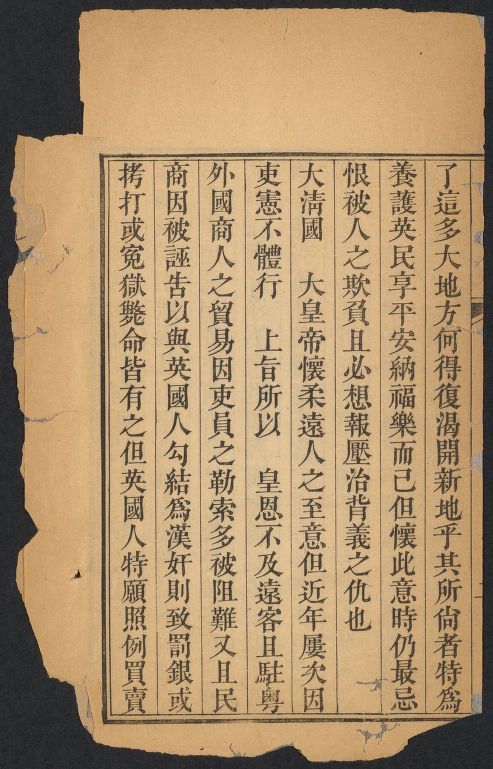 了這多大地方何得復渴開新地乎其所尙者特為
養護英民享平安納福樂而已但懷此意時仍最忌
恨被人之欺負且必想報壓治背義之仇也
大清國　大皇帝懷柔遠人之至意但近年屢次因
吏憲不體行　上旨所以　皇恩不及遠客且駐粵
外國商人之貿易因吏員之勒索多被阻難又且民
商因被誣告以與英國人勾結爲漢奸則致罰銀或
拷打或冤獄斃命皆有之但英國人特願照例買賣